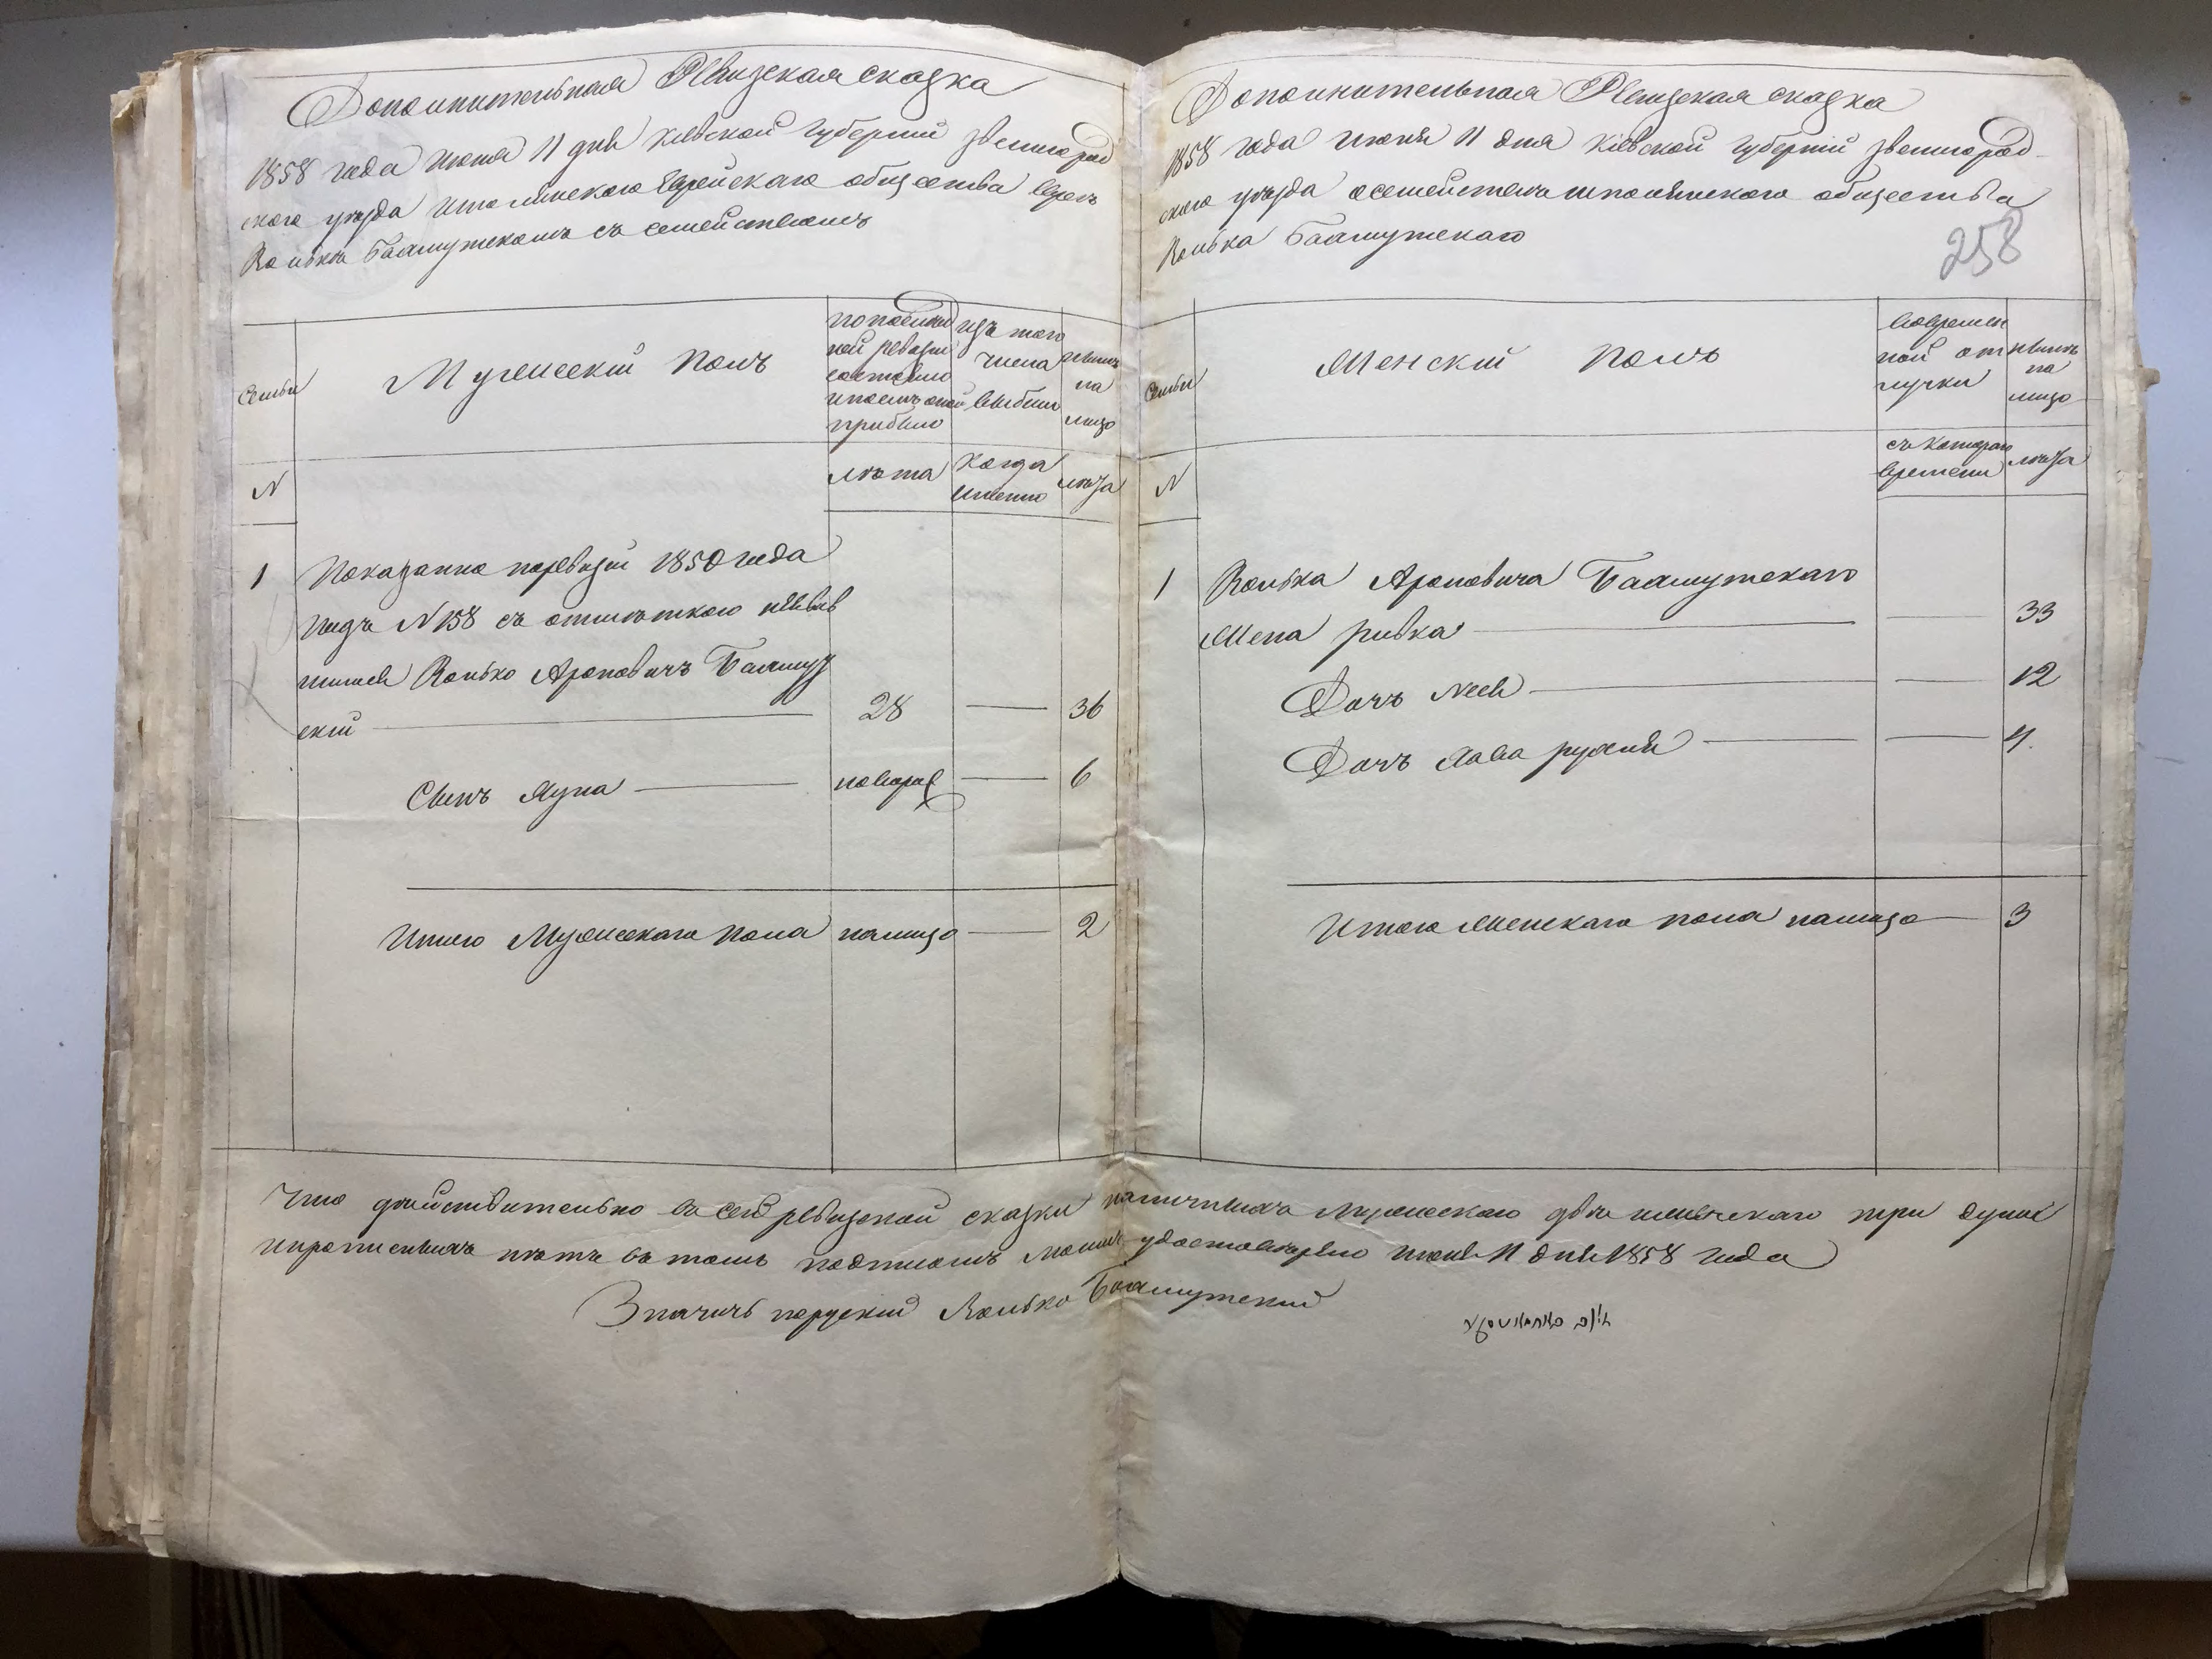 Дополнительная Ревизская сказка
1858 года июня 11 дня Киевской губернии Звенигород
ского уезда Шполянского Еврейскаго общества Еврей
Волько Баамутскомъ съ семействомъ
Семьи
Мужеский Полъ
по послед
ней ревизии
состояло
и после оной
прибыло
изъ того
числа
выбыло
ныне
на
лицо
N
лѣта
когда
именно
лѣта
1
Показанно по ревизии 1850 года
подъ N 158 съ отметкою
Волько Ароновичъ Баамут
ский
28
36
Сынъ Дуна
6
Итого Мужескаго пола налицо
2
Дополнительная Ревизская сказка
1858 года июня 11 дня Киевской губернии Звенигород
ского уезда о семействе шполянского общества
Волька Баамутскаго
258
Семьи
Женский Полъ
во времен
ной от
лучки
ныне
на
лицо
N
съ котораго
времени
лѣта
1
Волька Ароновича Баамутскаго
Жена Ривка
33
Дочь
12
Дочь Хава Рухля
4.
Итого Женскаго пола налицо
3
Что действительно въ сей ревизской сказки мужескаго два женскаго три души
и прописныхъ нетъ въ томъ подписомъ моимъ удостоверяю июня 11 дня 1858 года
Значитъ по руский Волько Баамутский